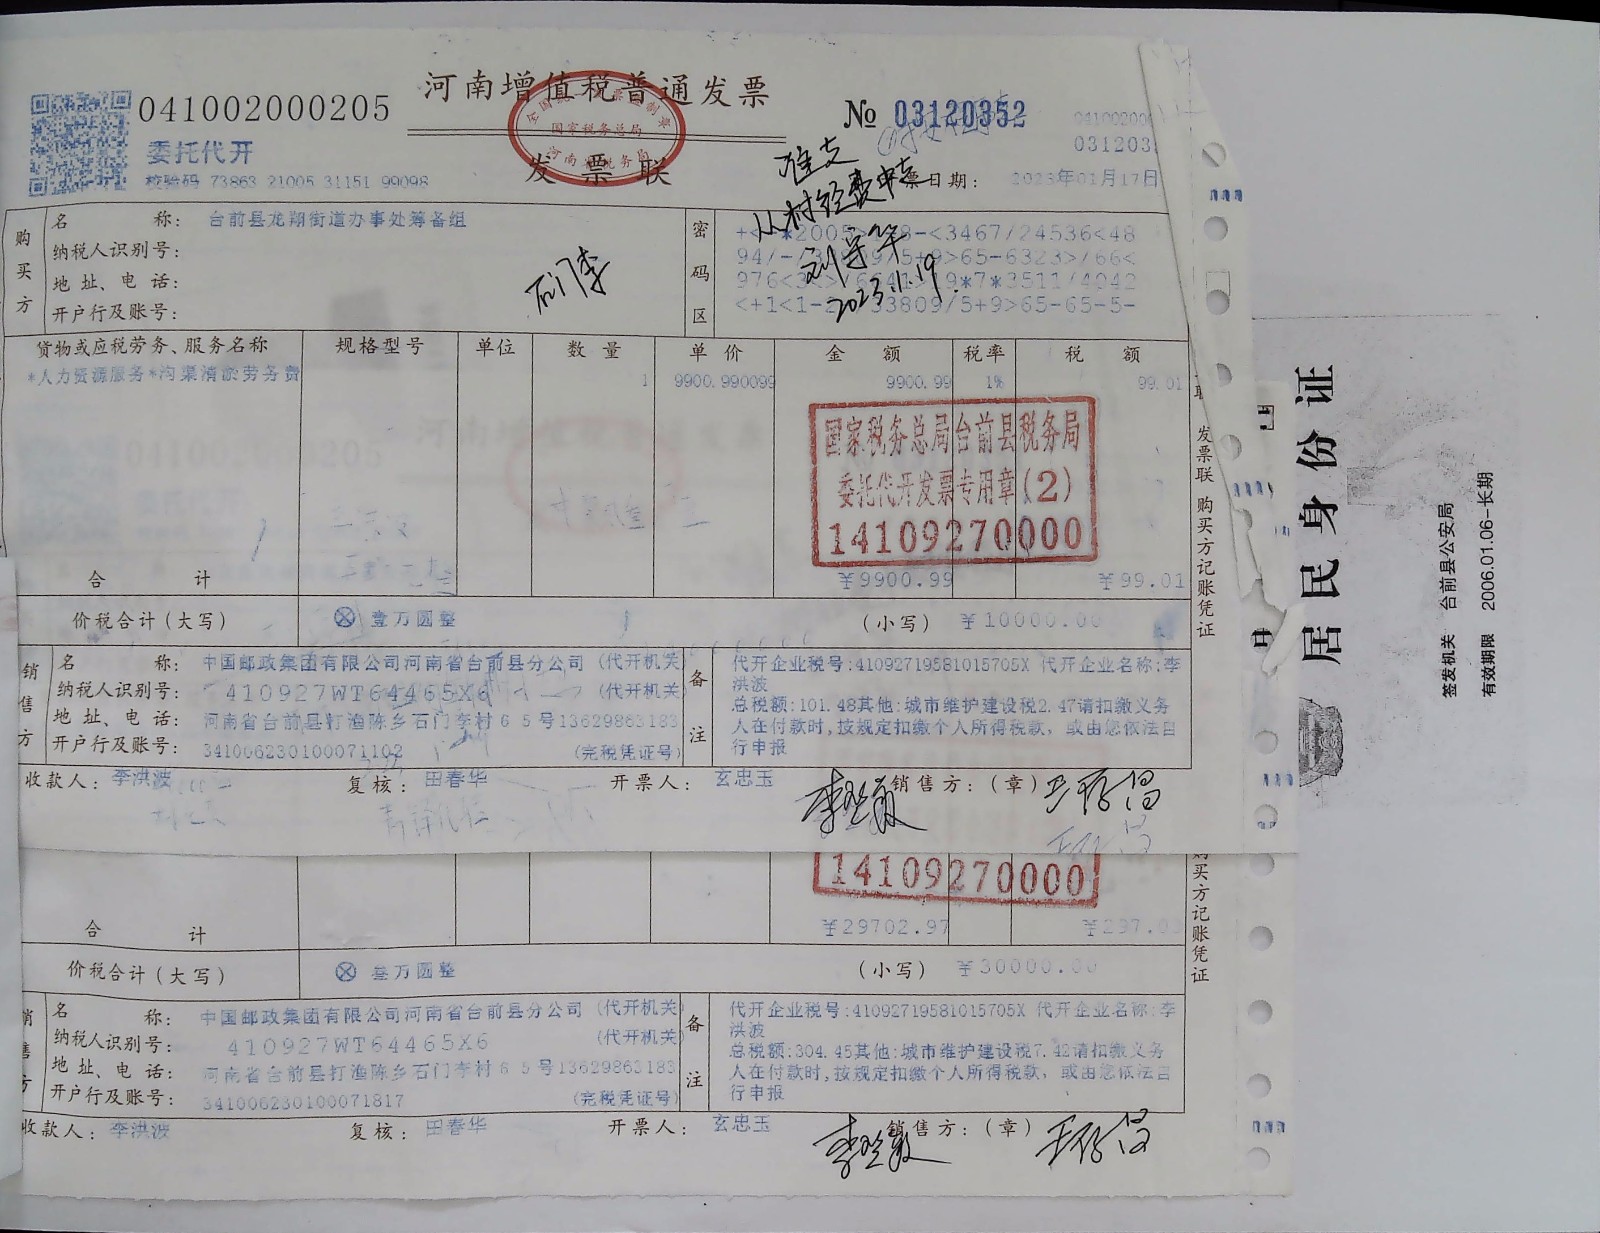 河南增值税普通发票
041002000205
№ 03120352
委托代开
校验码 73863 21005 31151 99098
全国统一发票监制章
国家税务总局
河南省税务局
发票联
准支
从村经费中支
刘守华
2023.1.19.
031203
票日期: 2023年01月17日
购买方
名称: 台前县龙翔街道办事处筹备组
纳税人识别号:
地址、电话:
开户行及账号:
石门李
密码区
货物或应税劳务、服务名称 规格型号 单位 数量 单价 金额 税率 税额
*人力资源服务*沟渠清淤劳务费 1 9900.990099 9900.99 1% 99.01
国家税务总局台前县税务局
委托代开发票专用章(2)
14109270000
合计 ¥9900.99 ¥99.01
价税合计(大写) ⊗ 壹万圆整 (小写) ¥10000.00
销售方
名称: 中国邮政集团有限公司河南省台前县分公司 (代开机关)
纳税人识别号: 410927WT64465X6 (代开机关)
地址、电话: 河南省台前县打渔陈乡石门李村65号13629863183
开户行及账号: 341006230100071102 (完税凭证号)
备注
代开企业税号:41092719581015705X 代开企业名称:李
洪波
总税额:101.48其他:城市维护建设税2.47请扣缴义务
人在付款时,按规定扣缴个人所得税款, 或由您依法自
行申报
收款人: 李洪波 复核: 田春华 开票人: 玄忠玉 销售方: (章)
发票联 购买方记账凭证
14109270000
合计 ¥29702.97
价税合计(大写) ⊗ 叁万圆整 (小写) ¥30000.00
名称: 中国邮政集团有限公司河南省台前县分公司 (代开机关)
纳税人识别号: 410927WT64465X6 (代开机关)
地址、电话: 河南省台前县打渔陈乡石门李村65号13629863183
开户行及账号: 341006230100071817 (完税凭证号)
备注
代开企业税号:41092719581015705X 代开企业名称:李
洪波
总税额:304.45其他:城市维护建设税7.42请扣缴义务
人在付款时,按规定扣缴个人所得税款, 或由您依法自
行申报
收款人: 李洪波 复核: 田春华 开票人: 玄忠玉 销售方: (章)
购买方记账凭证
居民身份证
签发机关 台前县公安局
有效期限 2006.01.06-长期